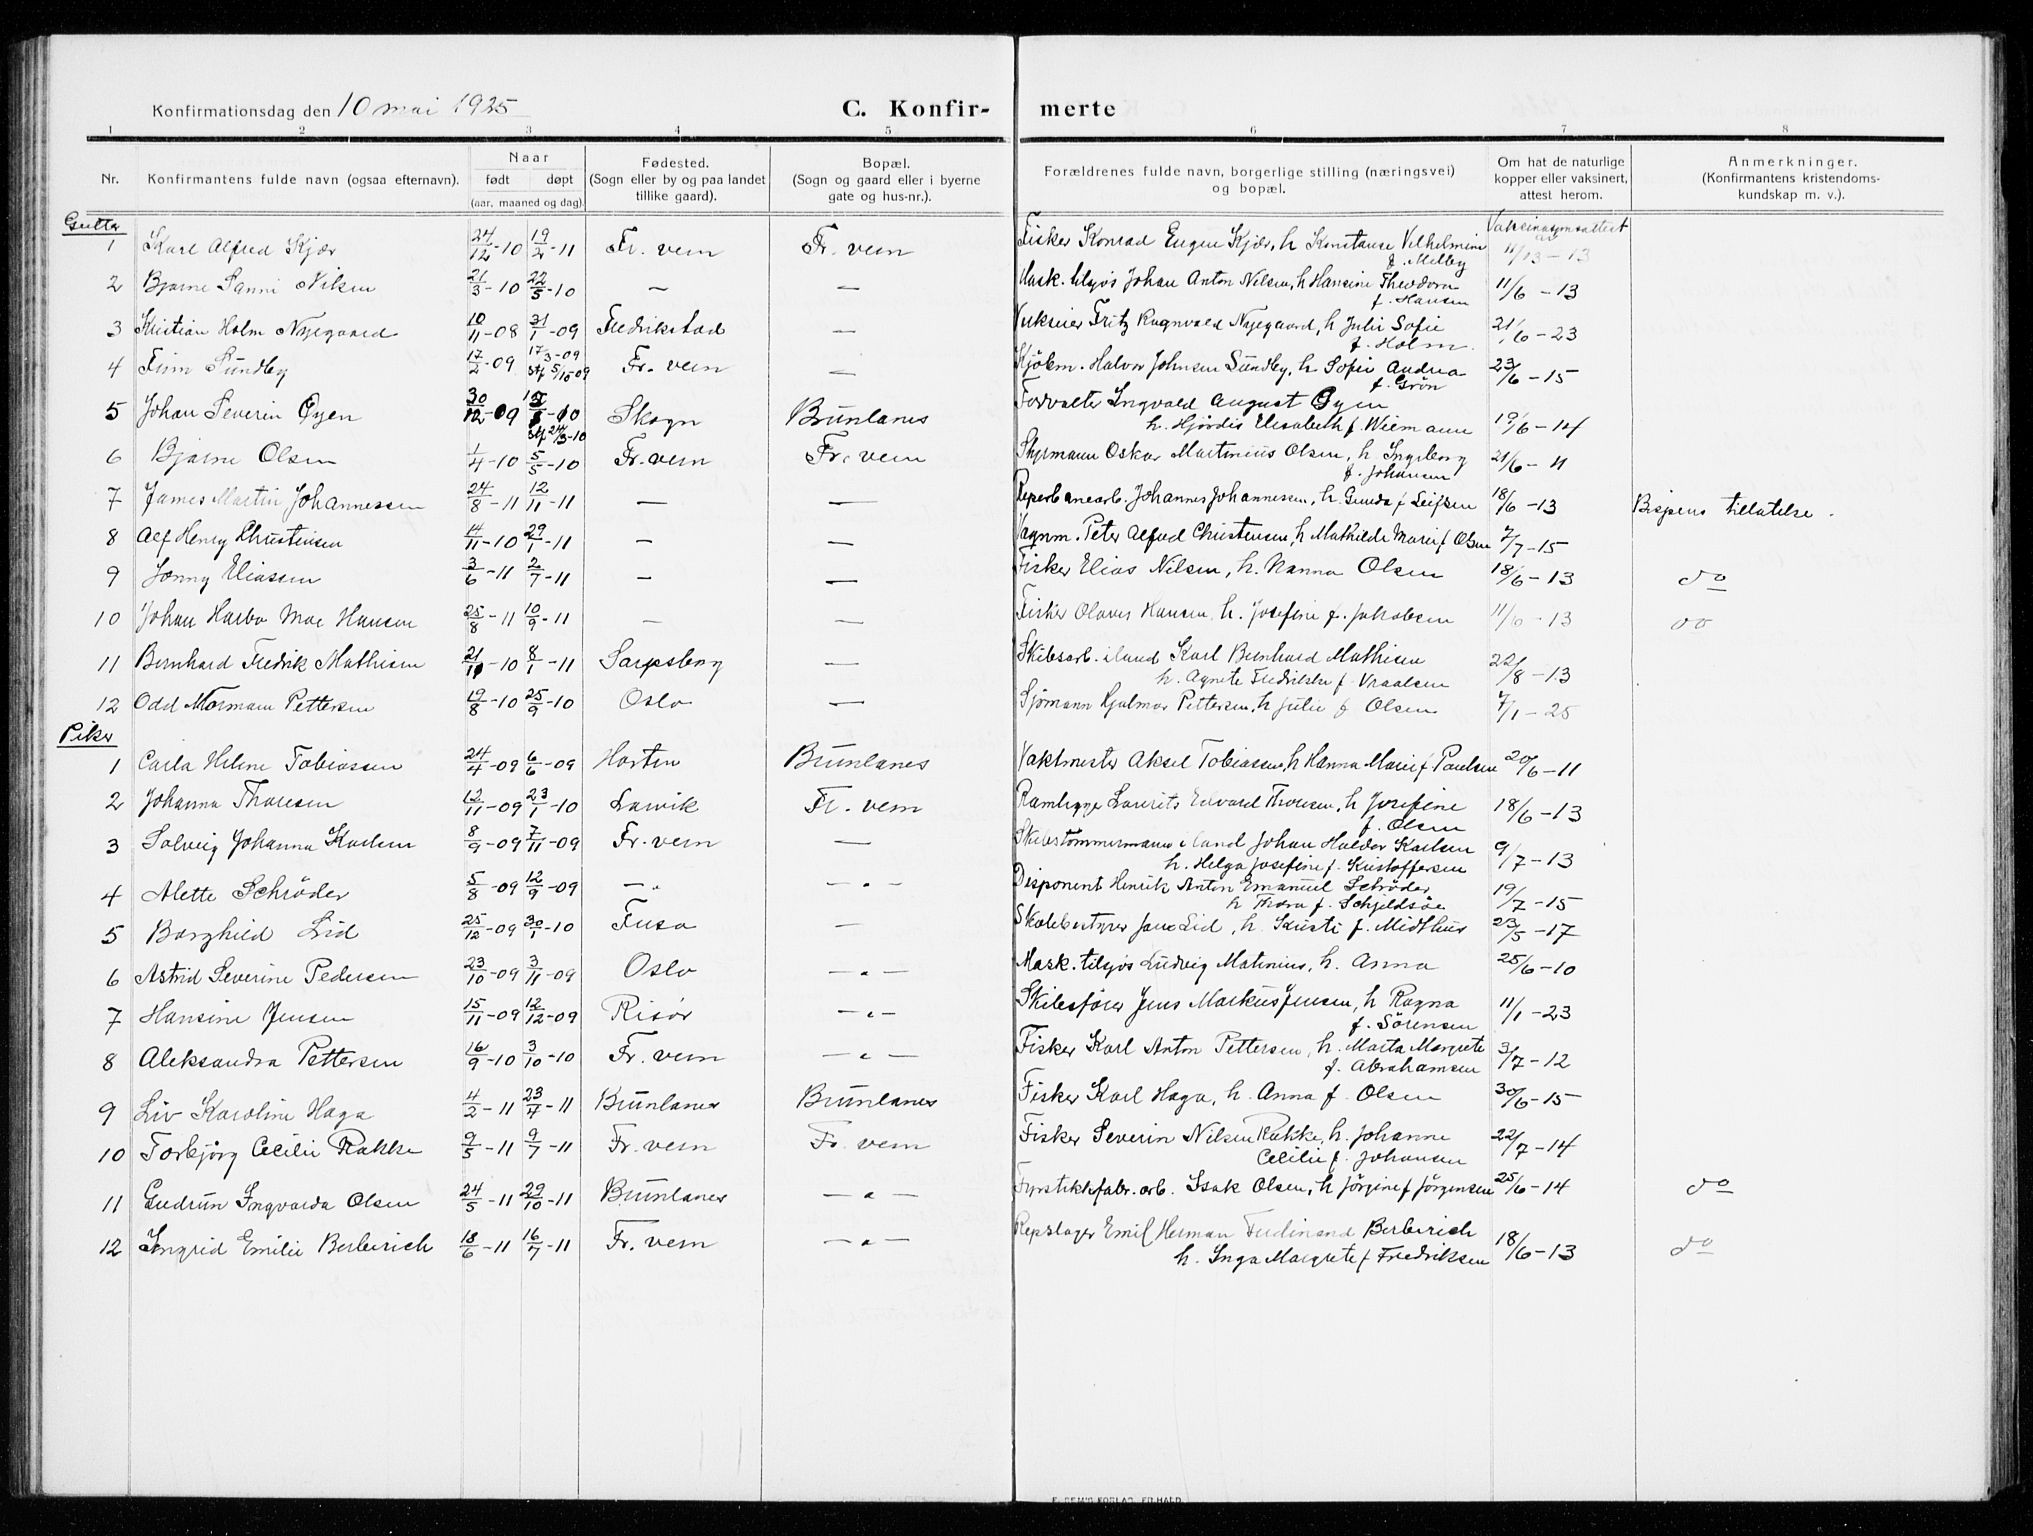 Konfirmationsdag den 10 mai 1925
C. Konfirmerte
1 2 3 4 5 6 7 8
Nr. | Konfirmantens fulde navn (ogsaa efternavn). | Naar født døpt (aar, maaned og dag). | Fødested. (Sogn eller by og paa landet tillike gaard). | Bopæl. (Sogn og gaard eller i byerne gate og hus-nr.). | Forældrenes fulde navn, borgerlige stilling (næringsvei) og bopæl. | Om hat de naturlige kopper eller vaksinert, attest herom. | Anmerkninger. (Konfirmantens kristendomskundskap m. v.).
Gutter
1 Karl Alfred Kjær 24/12-10 19/2-11 Fr. vern Fr. vern Fisker Konrad Eugen Kjær, h Konstanse Vilhelmine f. Melby Vaksinasjonsattest av 11/13-13
2 Bjarne Sanni Nilsen 21/3-10 22/5-10 — — Mask. tilsjøs Johan Anton Nilsen, h Hansine Theodora f. Hansen 11/6-13
3 Kristian Holm Nygaard 10/11-08 31/1-09 Fredrikstad — Fritz Ragnvald Nygaard, h Julie Sofie f. Holm 21/6-23
4 Finn Sundby 17/2-09 17/3-09 stf 5/10-09 Fr. vern — Kjøbm. Halvor Johnsen Sundby, h Sofie Andrea f. Grøn 23/6-15
5 Johan Severin Øyen 30/12-09 -10 stf 24/3-10 Skogn Brunlanes Forvalter Ingvald August Øyen h. Hjørdis Elisabeth f. Wiemann 19/6-14
6 Bjarne Olsen 1/4-10 5/5-10 Fr. vern Fr. vern Styrmann Oskar Martinius Olsen, h Ingeborg f. Johansen 21/6-11
7 James Martin Johannessen 24/8-11 12/11-11 — — Reperbanearb. Johannes Johannessen, h. Gunda f Leifsen 18/6-13 Bispens tillatelse.
8 Alf Henry Christensen 14/11-10 29/1-11 — — Vognm. Peter Alfred Christensen, h Mathilde Marie f Olsen 7/7-15
9 Jonny Eliassen 3/6-11 2/7-11 — — Fisker Elias Nilsen, h. Nanna Olsen 18/6-13 do
10 Johan Harbo Moe Hansen 25/8-11 10/9-11 — — Fisker Olaves Hansen, h. Josefine f. Jakobsen 11/6-13 do
11 Bernhard Fredrik Mathisen 21/11-10 8/1-11 Sarpsborg — Skibsarb. iland Karl Bernhard Mathisen h. Agnete Fredrikke f. Vraalsen 22/8-13
12 Odd Norman Pettersen 19/8-10 25/9-10 Oslo — Sjømann Hjalmar Pettersen, h Julie f Olsen 7/1-25
Piker
1 Carla Helene Tobiassen 24/4-09 6/6-09 Horten Brunlanes Vaktmester Aksel Tobiassen, h Hanna Marie f Paulsen 20/6-11
2 Johanna Thoresen 12/11-09 23/1-10 Larvik Fr. vern Ramhygge Laurits Edvard Thoresen, h Josefine f. Olsen 18/6-13
3 Solveig Johanna Karlsen 8/9-09 7/11-09 Fr. vern — Skibstømmermann iland Johan Halvor Karlsen h. Helga Josefine f. Kristoffersen 9/7-13
4 Alette Schrøder 5/8-09 12/9-09 — " — " — Disponent Henrik Anton Emanuel Schrøder h Thora f. Schjeldsøe 19/7-15
5 Borghild Lid 25/12-09 30/1-10 Fusa — Skolebestyrer Jens Lid, h. Kristi f. Midthus 23/5-17
6 Astrid Severine Pedersen 23/10-09 3/11-09 Oslo — " — Mask. tilsjøs Ludvig Matinius, h. Anna 25/6-10
7 Hansine Jensen 15/11-09 12/12-09 Risør — " — Skibsfører Jens Markus Jensen, h Ragna f. Sørensen 11/1-23
8 Aleksandra Pettersen 16/9-10 3/10-10 Fr. vern — " — Fisker Karl Anton Pettersen, h. Marta Margrete f. Abrahamsen 3/7-12
9 Liv Karoline Haga 4/2-11 23/4-11 Brunlanes Brunlanes Fisker Karl Haga, h. Anna f. Olsen 30/6-15
10 Torbjørg Cecilie Rakke 9/5-11 9/7-11 Fr. vern Fr. vern Fisker Severin Nilsen Rakke, h. Johanne Cecilie f. Johansen 22/7-14
11 Gudrun Ingvarda Olsen 24/5-11 29/10-11 Brunlanes — " — Fyrstikkfabr. arb. Isak Olsen, h Jørgine f Jørgensen 25/6-14 do
12 Ingrid Emilie Berberich 18/6-11 16/7-11 Fr. vern — " — Repslager Emil Herman Ferdinand Berberich h. Inga Margrete f Fredriksen 18/6-13 do